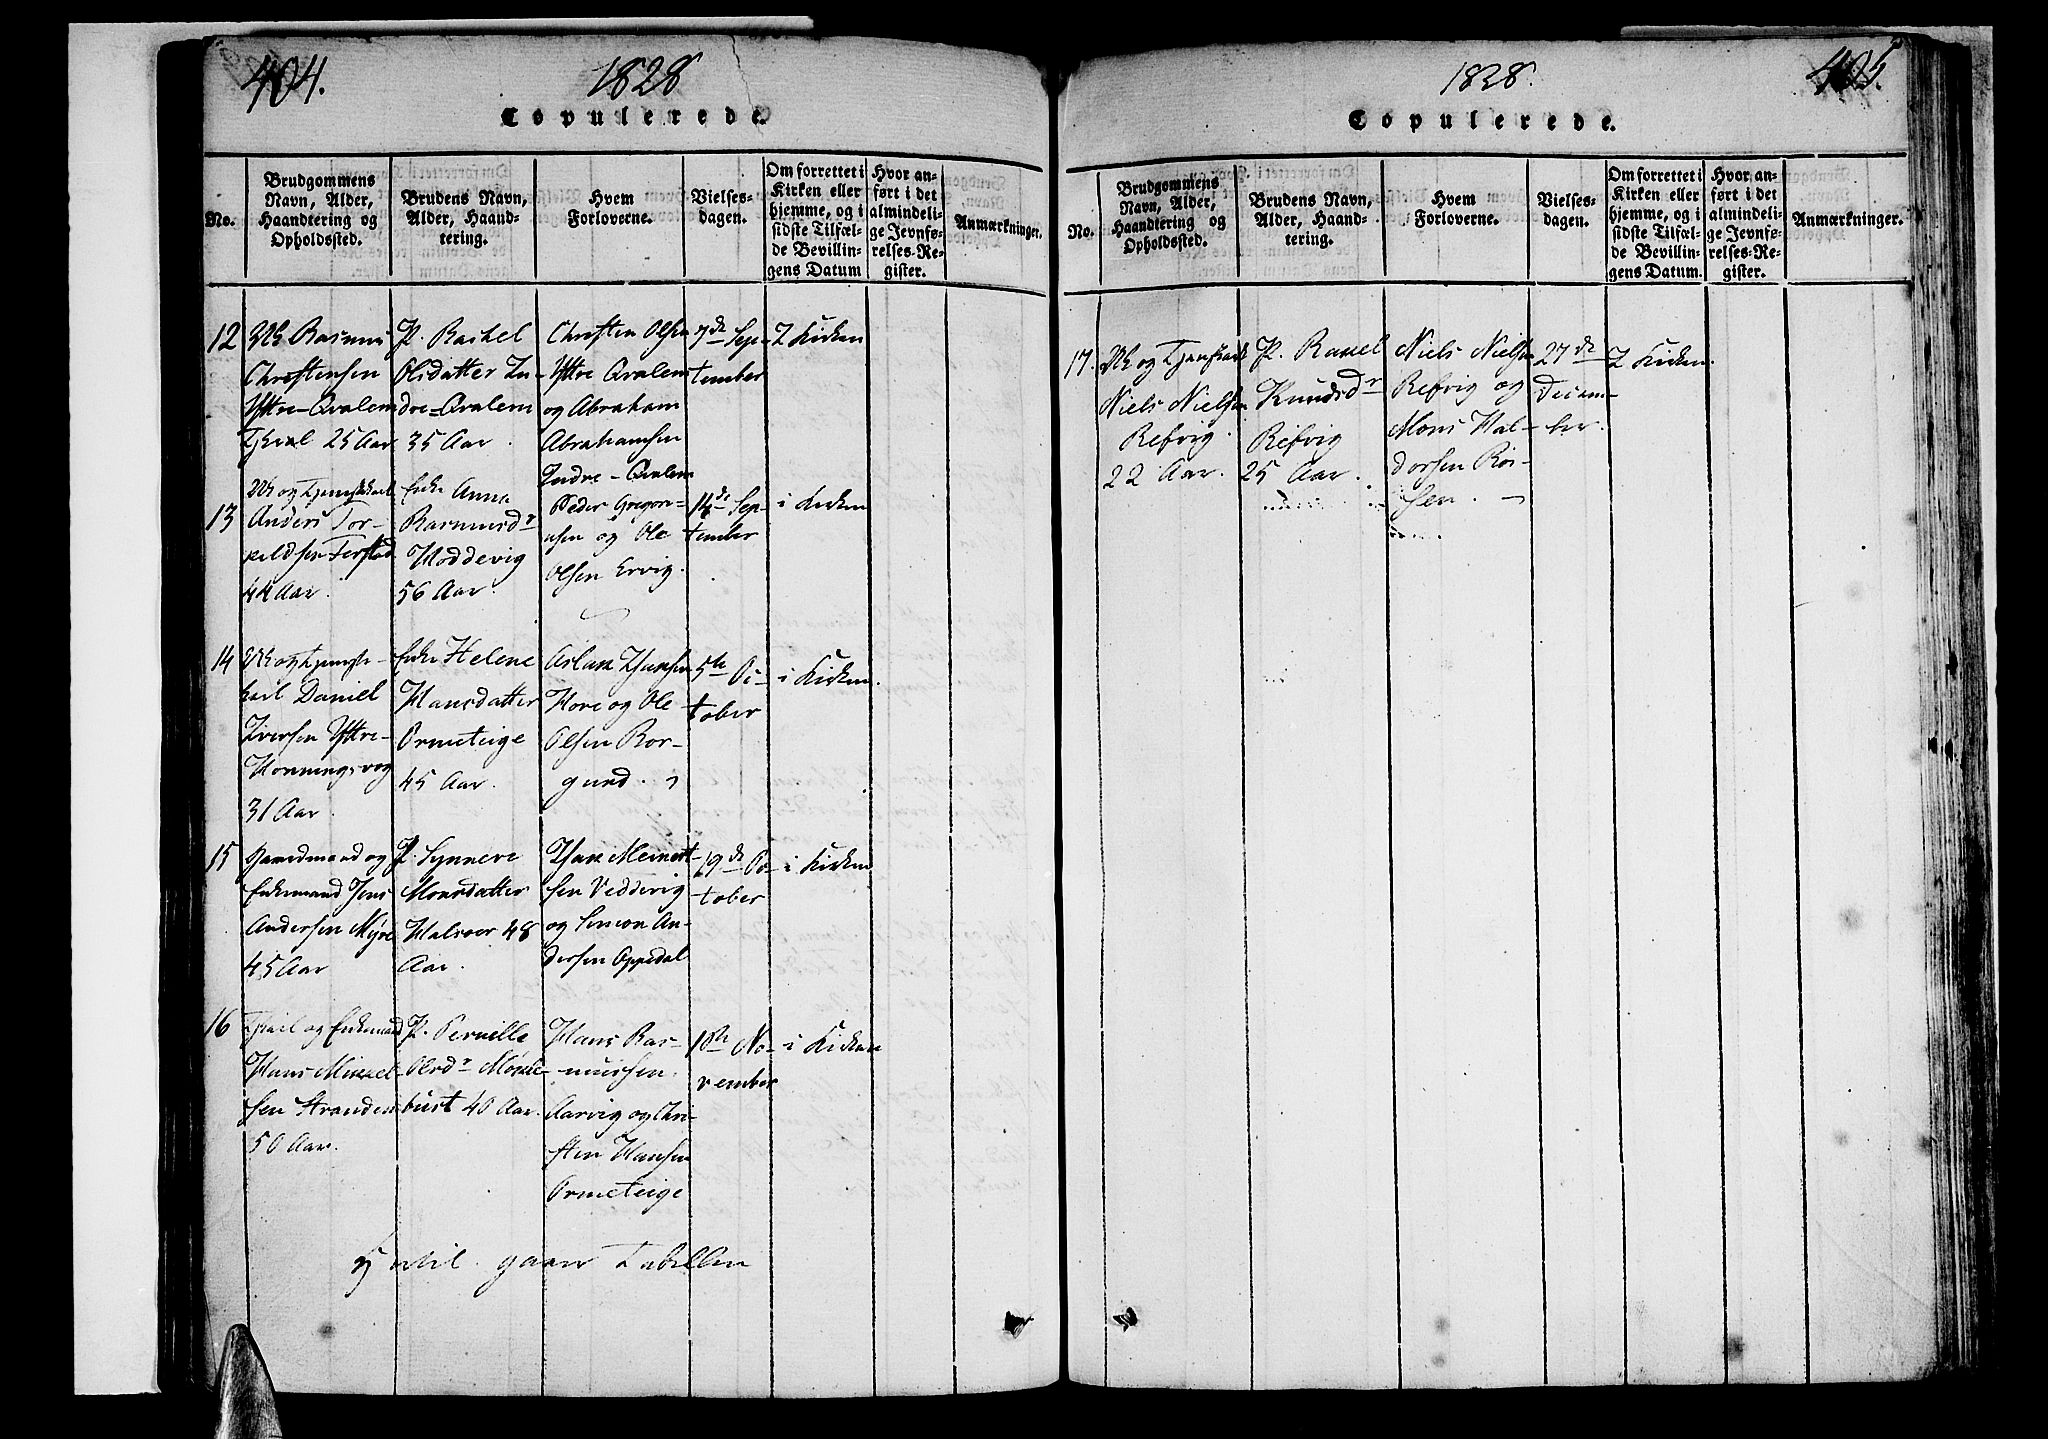 404.
1828
Copulerede.
No.
Brudgommens Navn, Alder, Haandtering og Opholdssted.
Brudens Navn, Alder, Haandtering.
Hvem Forloverne.
Vielsesdagen.
Om forrettet i Kirken eller hjemme, og i sidste Tilfælde Bevillingens Datum
Hvor anført i det almindelige Jevnførelses-Register.
Anmærkninger.
12
Rasmus
Christensen
Yttre-Qvalem
25 Aar
P. Rachel
Olsdatter In-
dre-Qvalem
35 Aar.
Christen Olsen
Yttre Qvalem
og Abraham
Abrahamsen
Indre-Qvalem
7de Sep-
tember
I Kirken
13
Anders Tor-
kildsen
44 Aar.
Enke Anna
Rasmusdr
Hoddevig
56 Aar.
Peder Gregori-
usen og Ole
Olsen Ervig.
14de Sep-
tember
i Kirken
14
Uk og Tjeneste-
karl Daniel
Iversen Yttre-
Honningsvog
31 Aar.
Enke Helene
Hansdatter
Ormeteige
45 Aar.
Aslak Hansen
Hove og Ole
Olsen Bor-
gund.
5te Oc-
tober
i Kirken.
15
Gaardmand og
Enkemand Jens
Andersen Myre
45 Aar
P. Synneve
Monsdatter
Halsoer 48
Aar.
Isak Meinert-
sen Vedderig
og Simon An-
dersen Oppedal
19de Oc-
tober
i Kirken
16
og Enkemand
Hans Mikkel-
sen Stranden
50 Aar.
P. Pernille
Olsdr Mykle-
bust 40 Aar.
Hans Ras-
mussen
Aarvig og Chri-
sten Hansen
Ormeteige
No-
vember
i Kirken
gaar Tabellen
1828.
405.
Copulerede.
No.
Brudgommens Navn, Alder, Haandtering og Opholdssted.
Brudens Navn, Alder, Haandtering.
Hvem Forloverne.
Vielsesdagen.
Om forrettet i Kirken eller hjemme, og i sidste Tilfælde Bevillingens Datum.
Hvor anført i det almindelige Jevnførelses-Register.
Anmærkninger.
17.
Uk og Tjenstkarl
Niels Nielsen
Refvig.
22 Aar.
P. Raxel
Knudsdr
Refvig
25 Aar.
Niels Nielsen
Refvig og
Mons Hal-
dorsen Rör-
sen.
27de
Decem-
ber.
I Kirken.